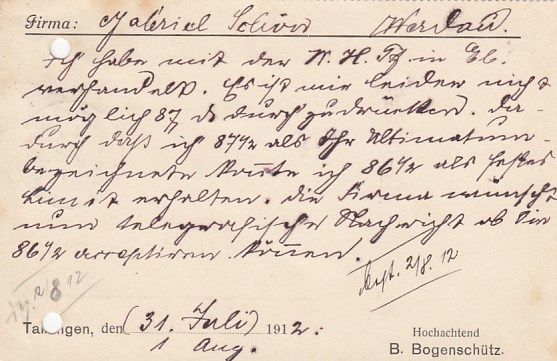 Firma: Gabriel Schön Werdau.
Ich habe mit der N. H. in Eb.
verhandelt. Es ist mir leider nicht
möglich 87 d durchzudrücken. Da-
durch daß ich 87 1/2 als Ihr Ultimatum
bezeichnete konnte ich 86 1/2 als festes
erhalten. Die Firma wünscht
nun telegrafische Nachricht ob Sie
86 1/2 acceptiren können.
2/8. 12
2/8 12
Tailfingen, den (31. Juli) 1912.
1 Aug.
Hochachtend
B. Bogenschütz.